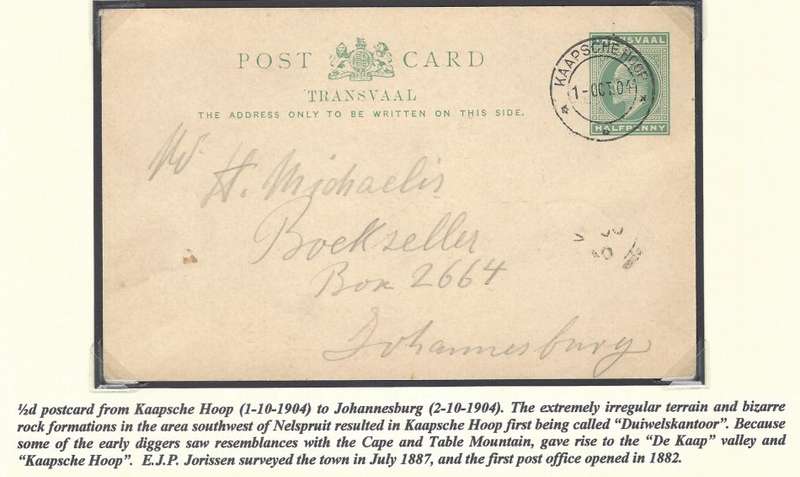 POST CARD
TRANSVAAL
THE ADDRESS ONLY TO BE WRITTEN ON THIS SIDE.
TRANSVAAL
HALFPENNY
KAAPSCHE HOOP
1-OCT.04
Mr H. Michaelis
Boekseller
Box 2664
Johannesburg
½d postcard from Kaapsche Hoop (1-10-1904) to Johannesburg (2-10-1904). The extremely irregular terrain and bizarre
rock formations in the area southwest of Nelspruit resulted in Kaapsche Hoop first being called “Duiwelskantoor”. Because
some of the early diggers saw resemblances with the Cape and Table Mountain, gave rise to the “De Kaap” valley and
“Kaapsche Hoop”. E.J.P. Jorissen surveyed the town in July 1887, and the first post office opened in 1882.